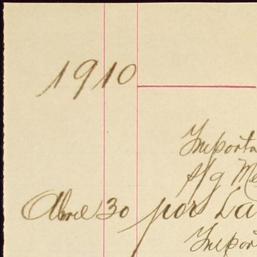 1910
Importa
s/g Me
Abril 30 por La
Import